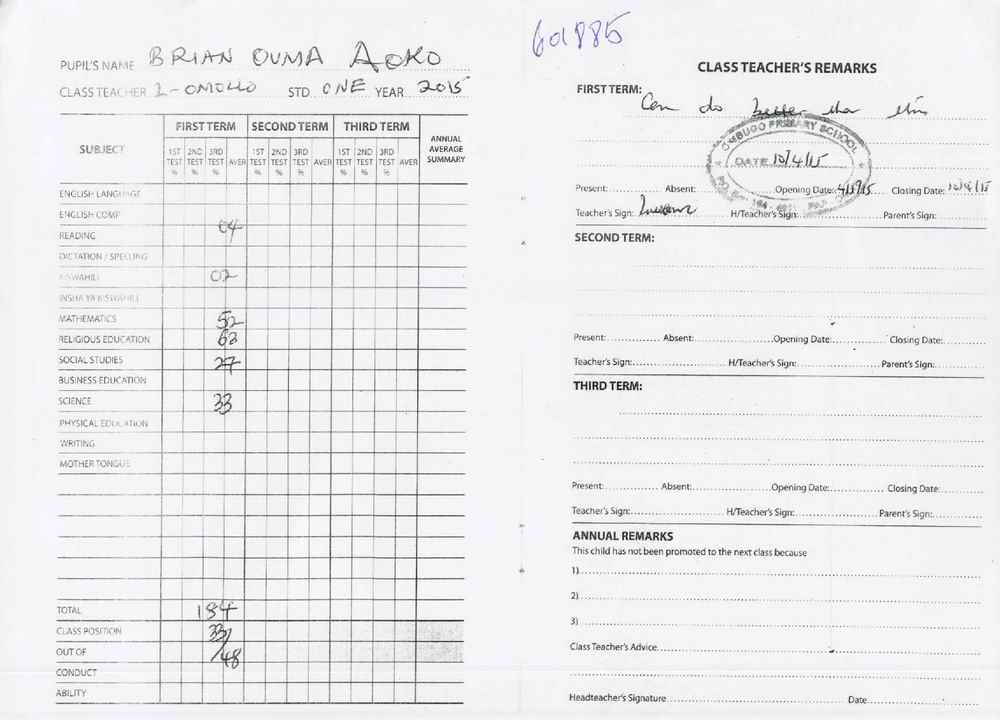 PUPIL'S NAME BRIAN OUMA AOKO
CLASS TEACHER L-OMOLLO STD. ONE YEAR 2015
SUBJECT FIRST TERM SECOND TERM THIRD TERM ANNUAL AVERAGE SUMMARY
1ST TEST % 2ND TEST % 3RD TEST % AVER 1ST TEST % 2ND TEST % 3RD TEST % AVER 1ST TEST % 2ND TEST % 3RD TEST % AVER
ENGLISH LANGUAGE
ENGLISH COMP
READING 04
DICTATION / SPELLING
KISWAHILI 02
INSHA YA KISWAHILI
MATHEMATICS 52
RELIGIOUS EDUCATION 63
SOCIAL STUDIES 27
BUSINESS EDUCATION
SCIENCE 33
PHYSICAL EDUCATION
WRITING
MOTHER TONGUE
TOTAL 184
CLASS POSITION 33
OUT OF /48
CONDUCT
ABILITY
601885
CLASS TEACHER'S REMARKS
FIRST TERM: Can do better than this
OMBUGO PRIMARY SCHOOL
DATE 10/4/15
Present: Absent: Opening Date: Closing Date: 10/4/15
Teacher's Sign: H/Teacher's Sign: Parent's Sign:
SECOND TERM:
Present: Absent: Opening Date: Closing Date:
Teacher's Sign: H/Teacher's Sign: Parent's Sign:
THIRD TERM:
Present: Absent: Opening Date: Closing Date:
Teacher's Sign: H/Teacher's Sign: Parent's Sign:
ANNUAL REMARKS
This child has not been promoted to the next class because
1)
2)
3)
Class Teacher's Advice
Headteacher's Signature Date